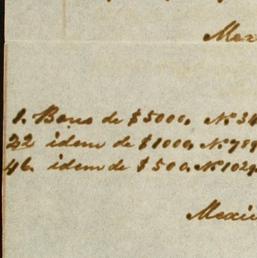 Mex
1. Bono de $5000, Nº 34
22 idem de $1000, Nº 789
46. idem de $500. Nº 1024
Mexic